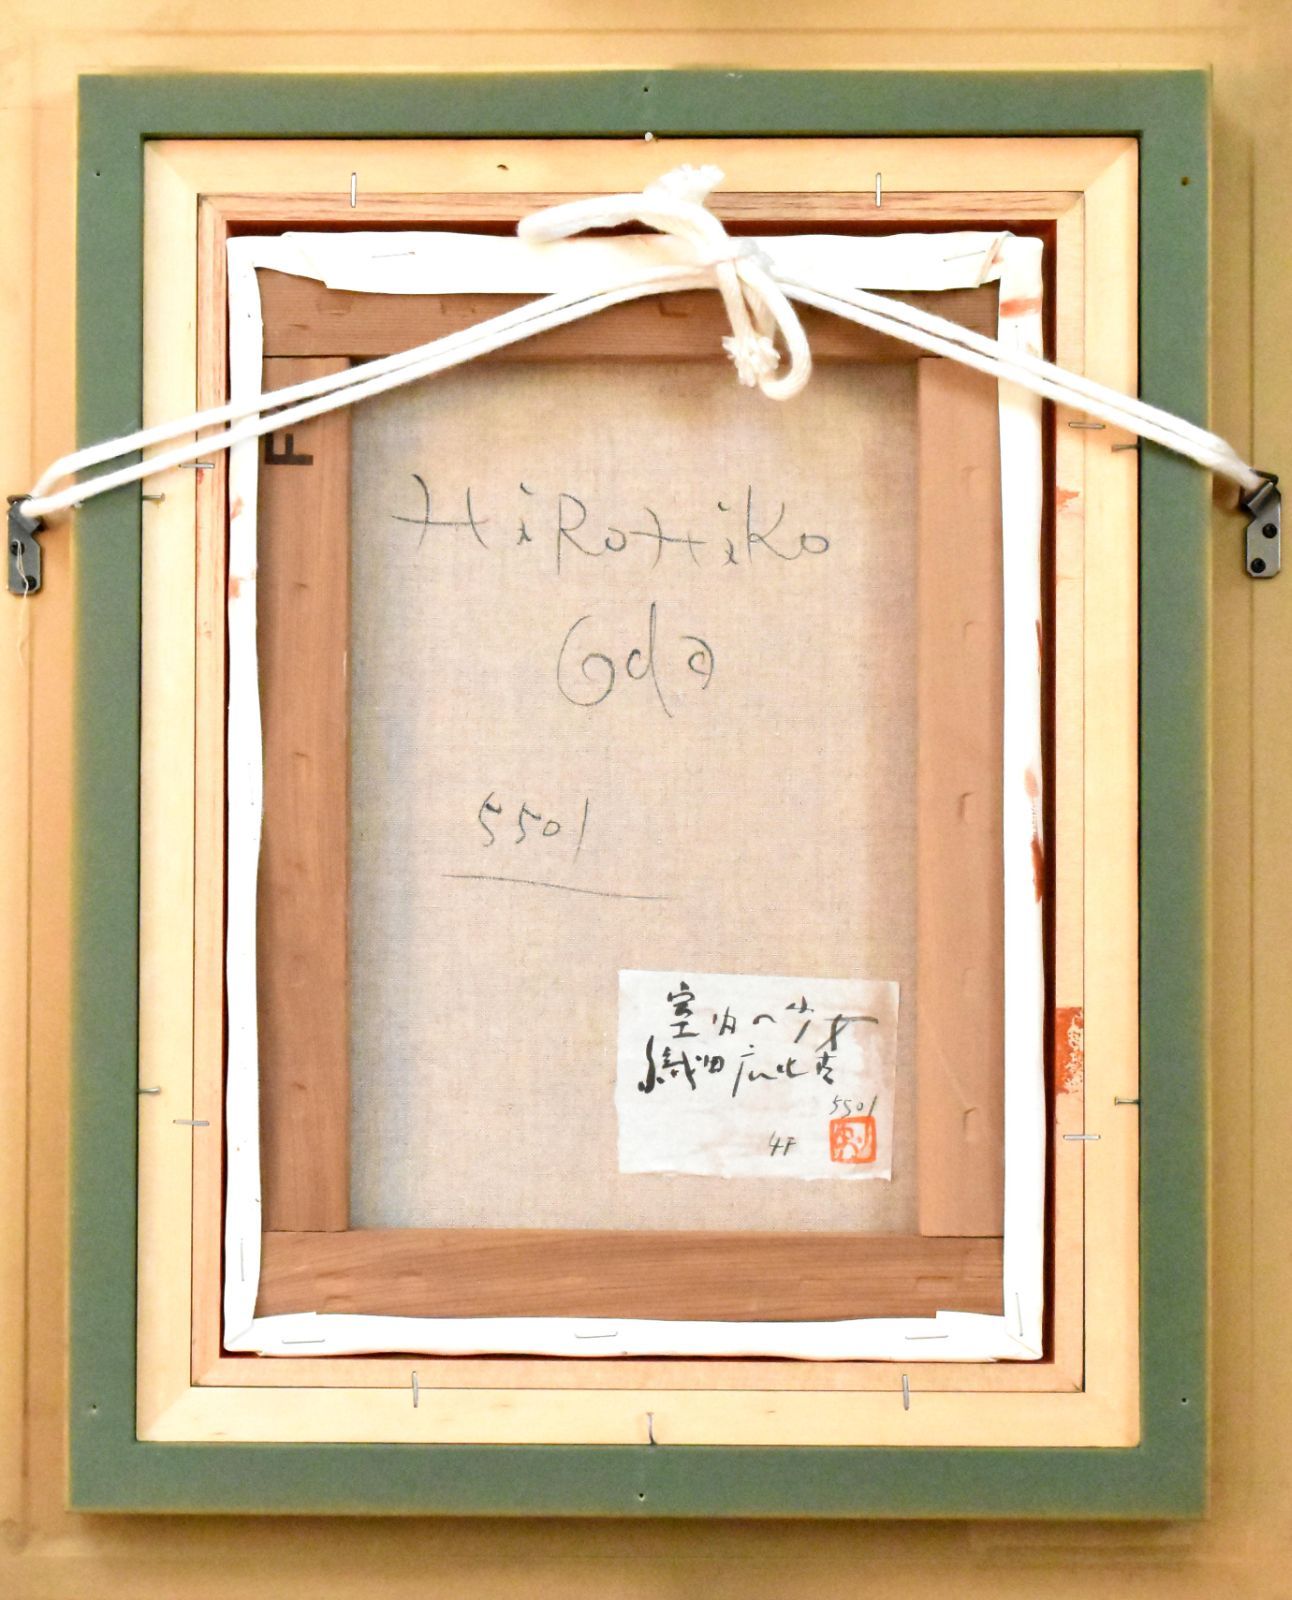 F
HiRoHiKo
Oda
5501
室内の少女
織田広比古
5501
4F